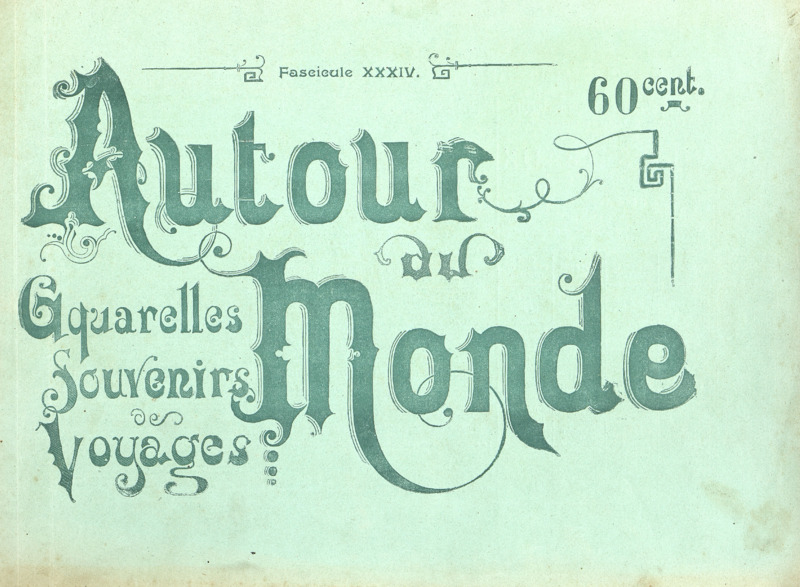 Fascicule XXXIV.
60 cent.
Autour
du
Monde
Aquarelles
Souvenirs
de
Voyages